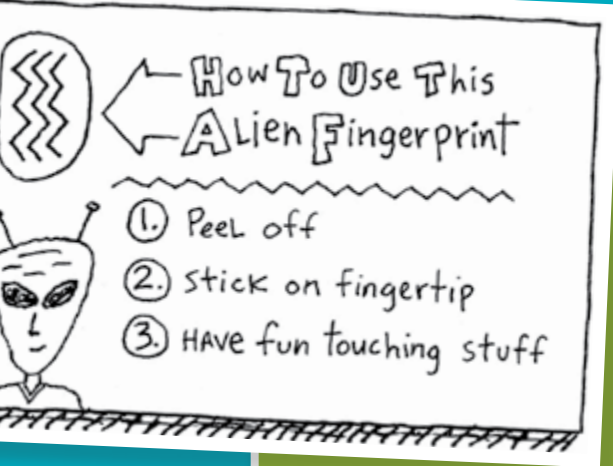 How To Use This
Alien Fingerprint
1. Peel off
2. Stick on fingertip
3. Have fun touching stuff